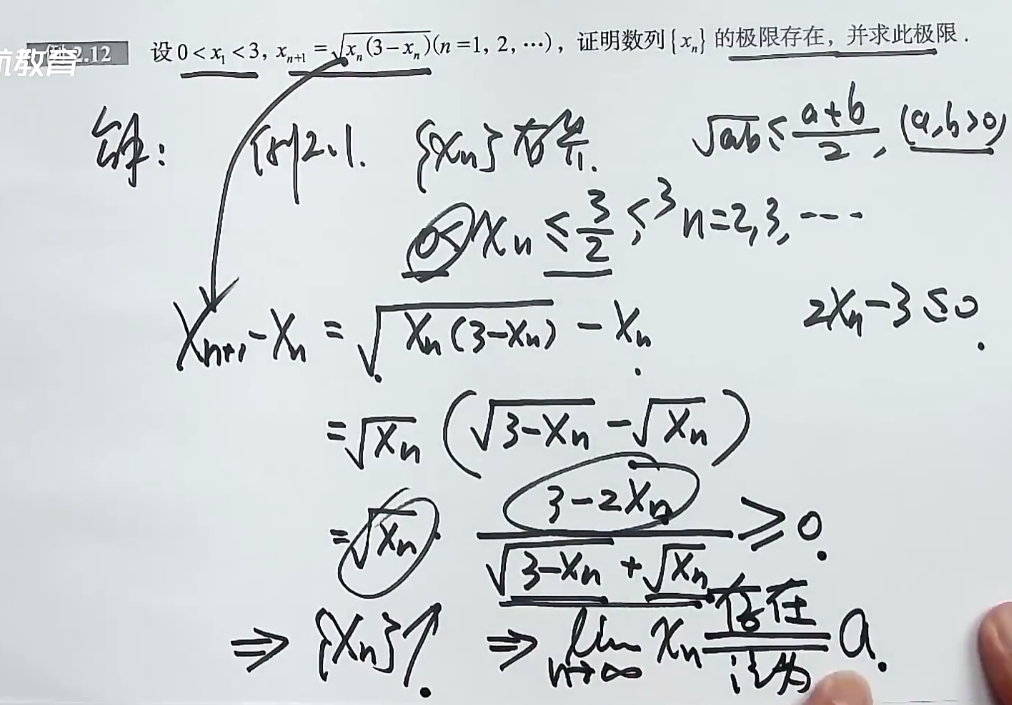 航教育
例2.12 设 0<x₁<3, xₙ₊₁=√(xₙ(3−xₙ))(n=1, 2, ⋯), 证明数列{xₙ}的极限存在, 并求此极限.
解: 例2.1. {xₙ}有界. √(ab)≤(a+b)/2, (a,b>0)
0<xₙ≤3/2≤3 n=2,3,⋯
xₙ₊₁−xₙ=√(xₙ(3−xₙ))−xₙ 2xₙ−3≤0.
=√xₙ(√(3−xₙ)−√xₙ)
=√xₙ·(3−2xₙ)/(√(3−xₙ)+√xₙ)≥0.
⇒{xₙ}↑. ⇒lim n→∞ xₙ 存在 记为 a.